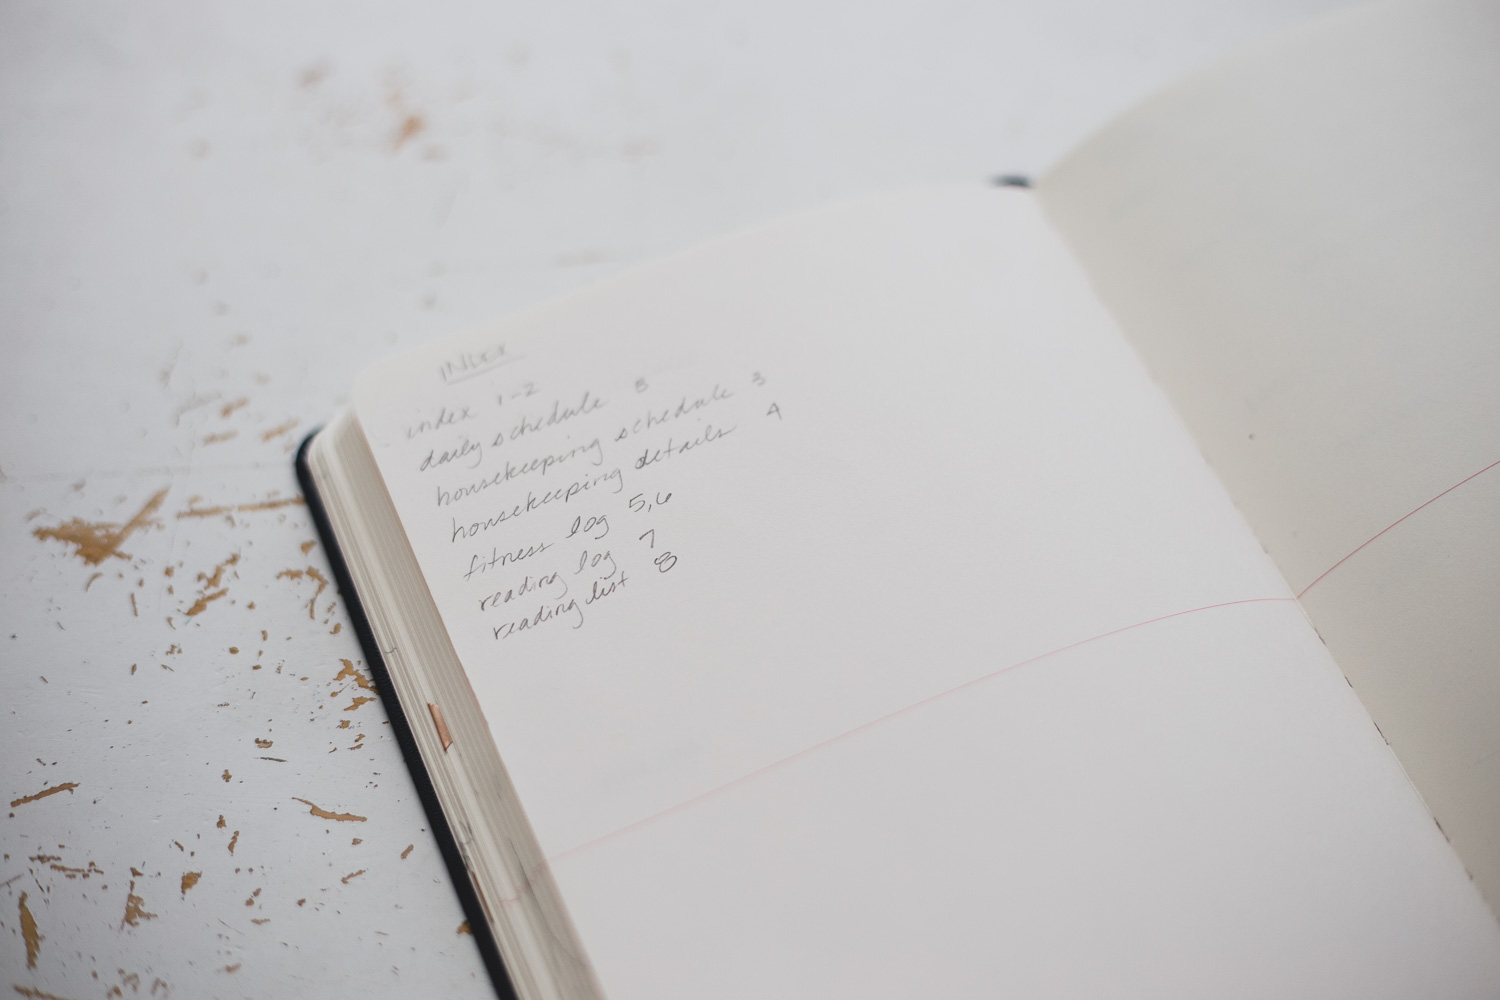 INDEX
index 1-2
daily schedule 3
housekeeping schedule 3
housekeeping details 4
fitness log 5,6
reading log 7
reading list 8